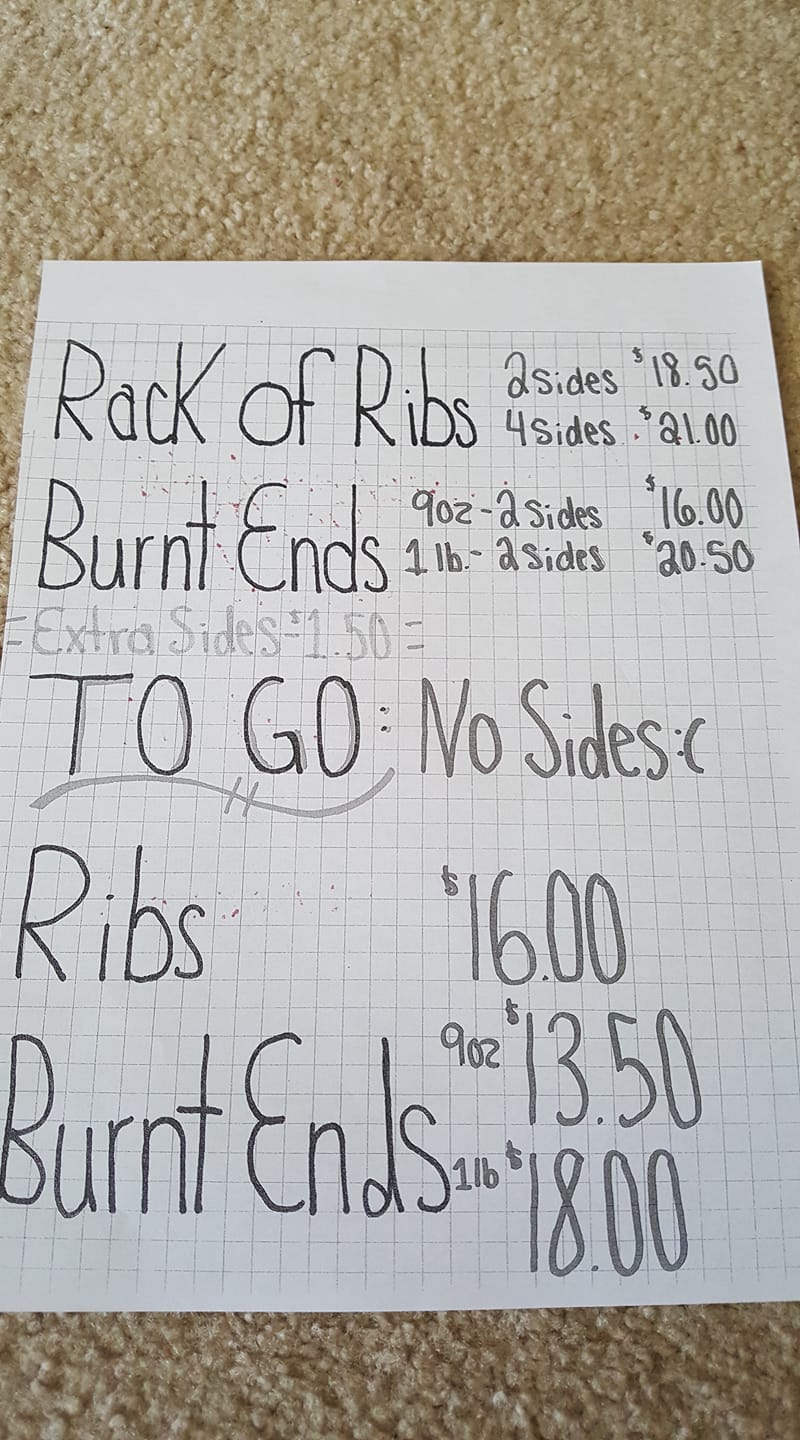 Rack of Ribs 2 sides $18.50
4 sides . $21.00
Burnt Ends 9oz - 2 sides $16.00
1 lb. - 2 sides $20.50
=Extra Sides-$1.50=
TO GO: No Sides :(
Ribs $16.00
Burnt Ends 9oz $13.50
1lb $18.00